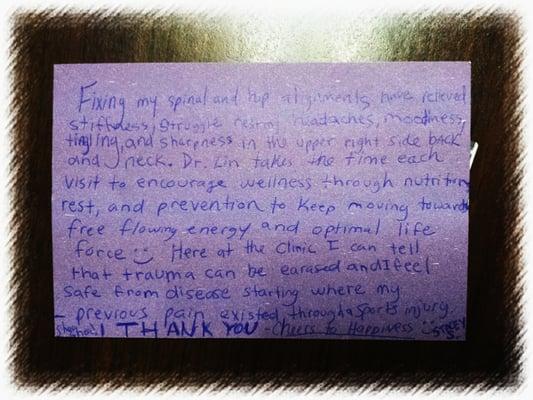 Fixing my spinal and hip alignments have relieved
stiffness, struggle resting, headaches, moodiness,
tingling, and sharpness in the upper right side back
and neck. Dr. Lin takes the time each
visit to encourage wellness through nutrition
rest, and prevention to keep moving towards
free flowing energy and optimal life
force Here at the Clinic I can tell
that trauma can be earased and I feel
safe from disease starting where my
previous pain existed, through a sports injury
I THANK YOU - Cheers to Happiness STACEY S.